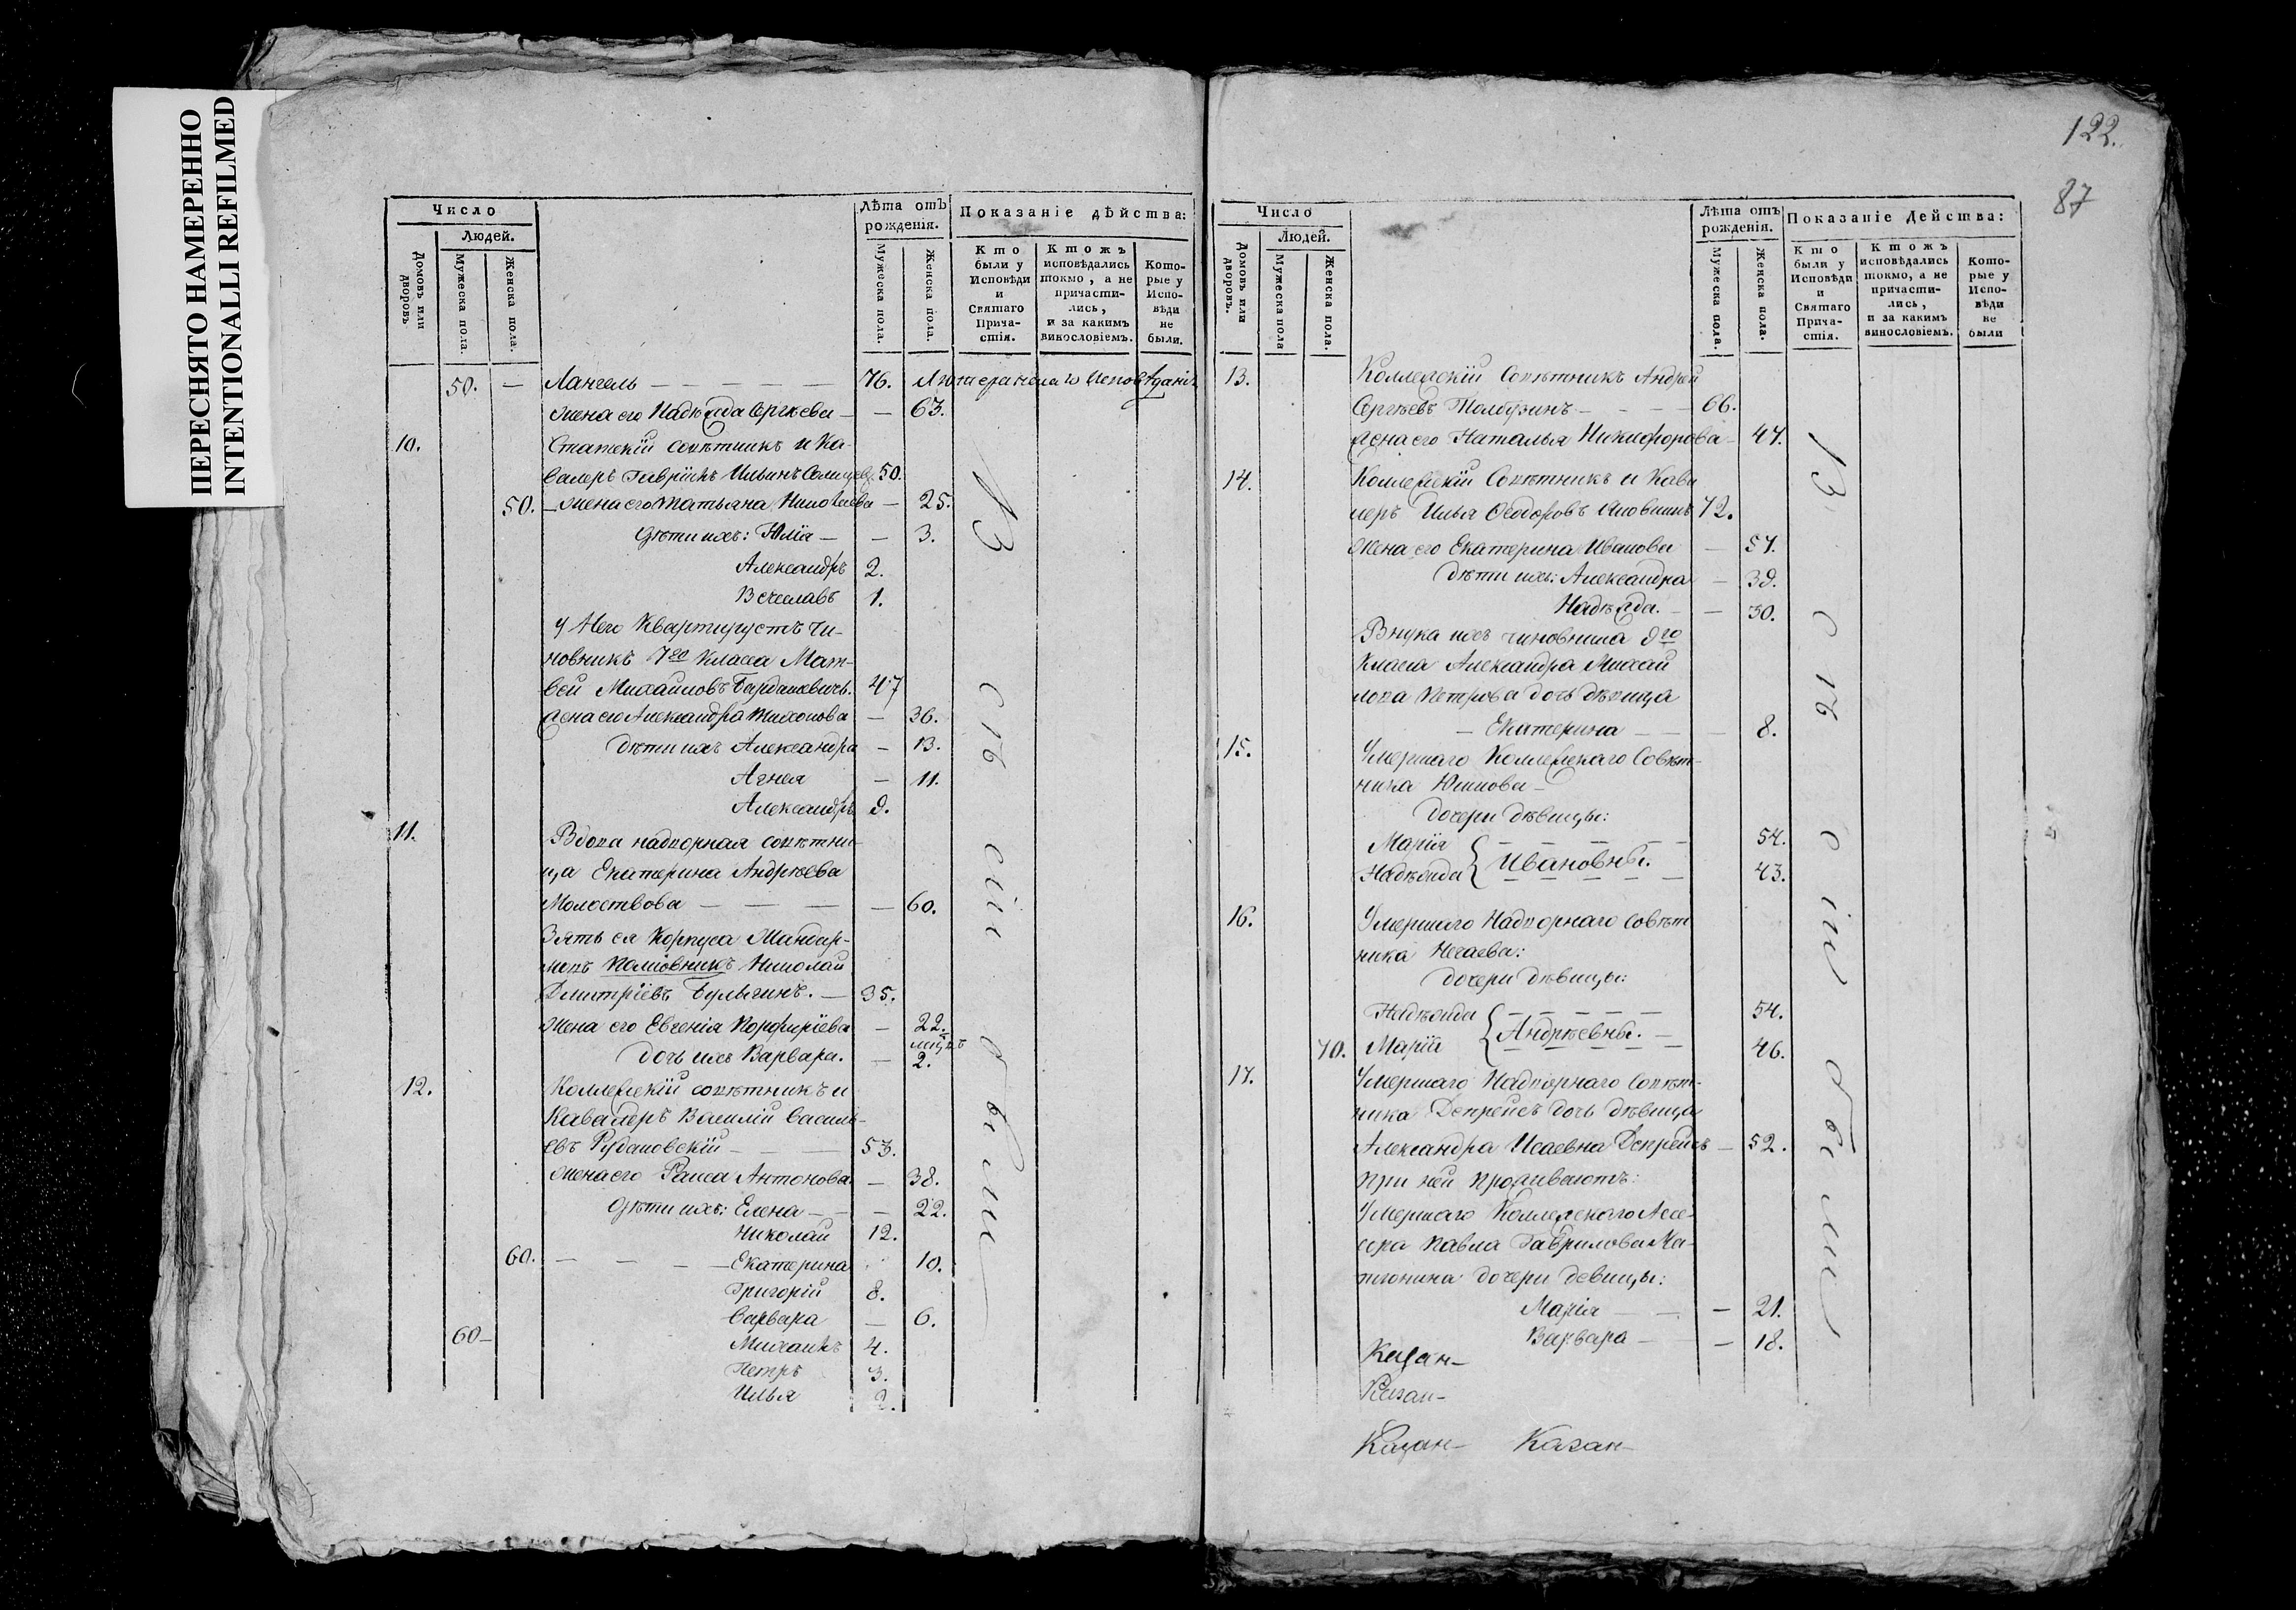 ПЕРЕСНЯТО НАМЕРЕННО
INTENTIONALLI REFILMED
122.
87
Число
Людей.
Домовъ или дворовъ
Мужеска пола.
Женска пола.
Лѣта отъ рожденія.
Мужеска пола.
Женска пола.
Показаніе дѣйства:
Кто были у Исповѣди и Святаго Прича-стія.
Ктожъ исповѣдались токмо, а не причасти-лись, и за какимъ винословіемъ.
Кото-рые у Испо-вѣди не были.
50. — Лангель — 76. Лютеранскаго Исповѣданія
Жена его Надежда Сергѣева — — 63.
10. Статскій совѣтникъ и Ка-
валеръ Гавріилъ Ильинъ 50.
50. — Жена его Татьяна Николаева — 25.
Дѣти ихъ: Юлія — — 3.
Александръ 2.
Всчеславъ 1.
У Него Квартируетъ Чи-
новникъ 7го Класса Мат-
вей Михайловъ 47
Жена его Александра Тихонова — 36.
Дѣти ихъ Александра — 13.
Агнея — 11.
Александръ 9.
11. Вдова надворная совѣтни-
ца Екатерина Андреева
Молоствова — — — — 60.
Зять ея Корпуса Жандар-
мовъ Полковникъ Николай
Дмитріевъ Булыгинъ. — 35.
Жена его Евгенія Порфиріева — 22.
Дочь ихъ Варвара. — 2.
12. Коллежскій совѣтникъ и
Кавалеръ Василій Василь-
евъ Рудановскій — 53.
Жена его Раиса Антонова — 38.
Дѣти ихъ: Елена — — 22.
Николай 12.
60. — — — Екатерина 10.
Григорій 8.
Варвара — 6.
60 — Михаилъ 4.
Петръ 3.
Илья 2.
В с т с і и б ы л и
Число
Людей.
Домовъ или дворовъ.
Мужеска пола
Женска пола.
Лѣта отъ рожденія.
Мужеска пола.
Женска пола.
Показаніе Дейсства:
Кто были у Исповѣди и Святаго Прича-стія.
Ктожъ исповѣдались токмо, а не причасти-лись, и за какимъ винословіемъ.
Кото-рые у Испо-вѣди не были
13. Коллежскій Совѣтникъ Андрей
Сергѣевъ Толбузинъ — — — 66.
Жена его Наталья Никифорова — 47.
14. Коллежскій Совѣтникъ и Кава
леръ Илья Ѳедоровъ 72.
Жена его Екатерина Иванова — 57.
Дѣти ихъ: Александра — 39.
Надежда. — — 30.
Внука ихъ чиновника 9го
Класса Александра Михай
лова Петрова дочь дѣвица
— Екатерина — — — 8.
15. Умершаго Коллежскаго Совѣт-
ника Юшкова —
дочери дѣвицы:
Марія 54.
Ивановны.
Надежда 43.
16. Умершаго Надворнаго совѣт
ника Нечаева:
дочери дѣвицы:
Надежда 54.
Андреевны.
70. Марія 46.
17. Умершаго Надворнаго Совѣт-
ника Депрейсъ дочь дѣвица
Александра Исаевна Депрейсъ — 52.
При ней проживаютъ:
Умершаго Коллежскаго Ассе-
сора Павла Гаврилова
дочери девицы:
Марія — — — 21.
Варвара — — 18.
В с т с і и б ы л и
Казан—
Казан—
Казан— Казан—